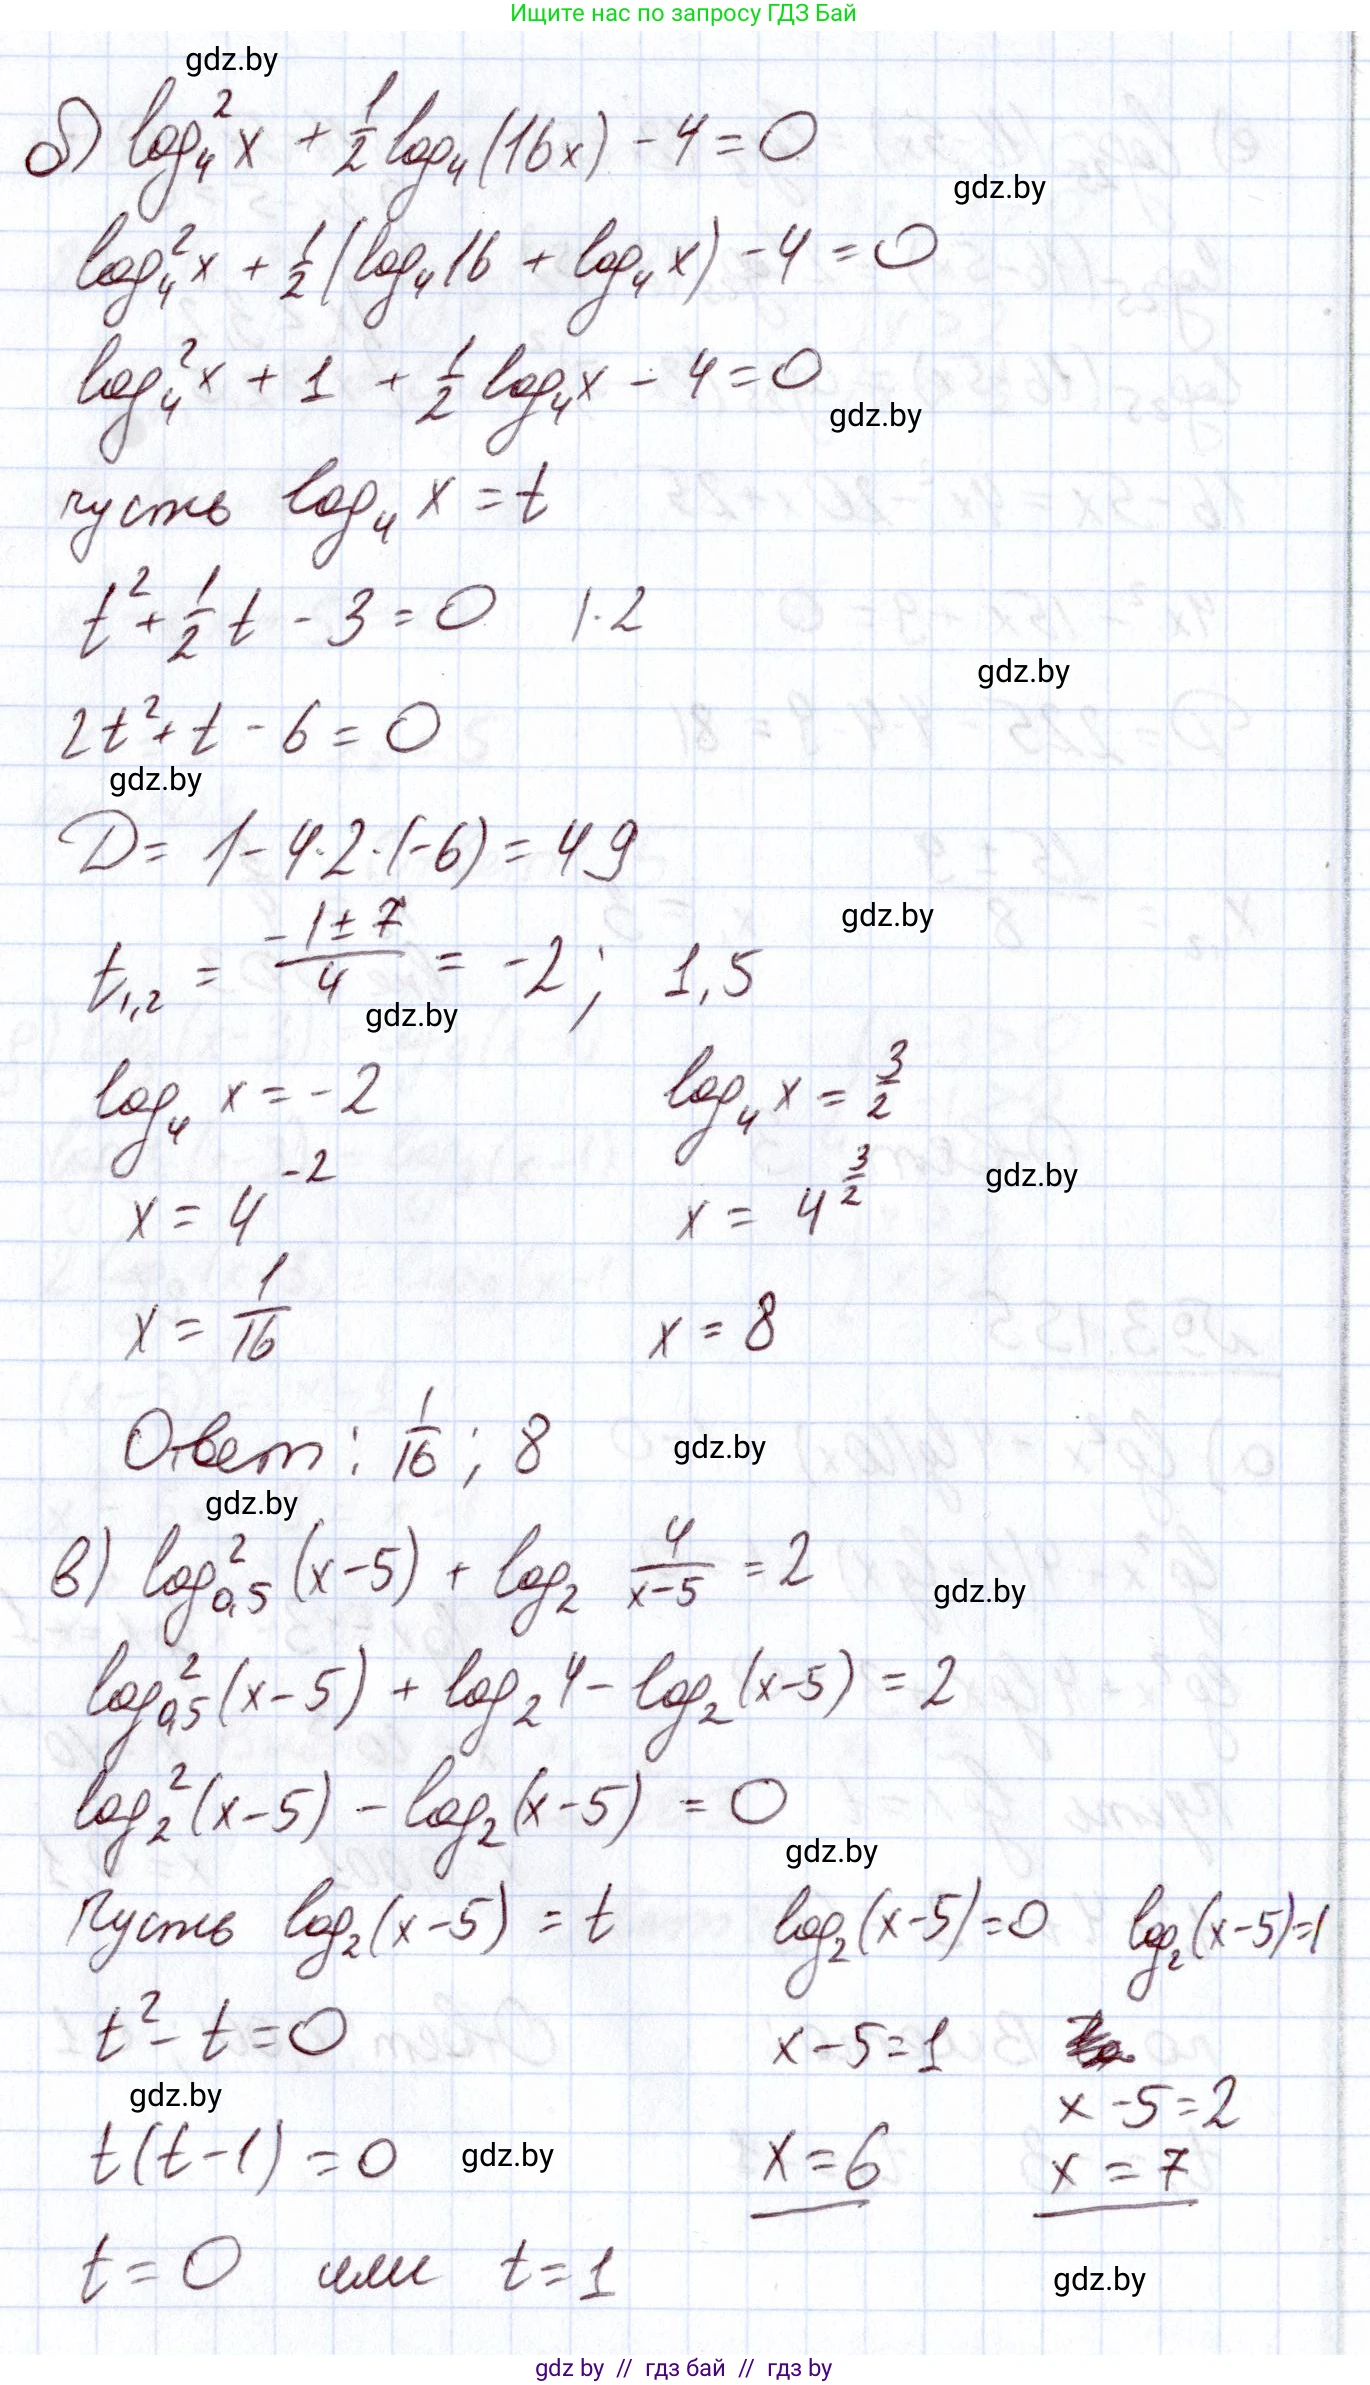 Ищите нас по запросу ГДЗ Бай
gdz.by
б) log₄² x + 1/2 log₄(16x) - 4 = 0
gdz.by
log₄² x + 1/2 (log₄ 16 + log₄ x) - 4 = 0
log₄² x + 1 + 1/2 log₄ x - 4 = 0
gdz.by
пусть log₄ x = t
t² + 1/2 t - 3 = 0 | · 2
gdz.by
2t² + t - 6 = 0
gdz.by
D = 1 - 4·2·(-6) = 49
gdz.by
t₁,₂ = (-1 ± 7)/4 = -2; 1,5
gdz.by
log₄ x = -2 log₄ x = 3/2
gdz.by
x = 4⁻² x = 4^(3/2)
x = 1/16 x = 8
Ответ: 1/16; 8
gdz.by
gdz.by
в) log₀,₅² (x-5) + log₂ 4/(x-5) = 2
gdz.by
log₀,₅² (x-5) + log₂ 4 - log₂ (x-5) = 2
log₂² (x-5) - log₂ (x-5) = 0
gdz.by
Пусть log₂ (x-5) = t log₂ (x-5) = 0 log₂ (x-5) = 1
t² - t = 0 x - 5 = 1
gdz.by
x - 5 = 2
t(t-1) = 0 x = 6 x = 7
gdz.by
t = 0 или t = 1
gdz.by
gdz by // гдз бай // gdz by